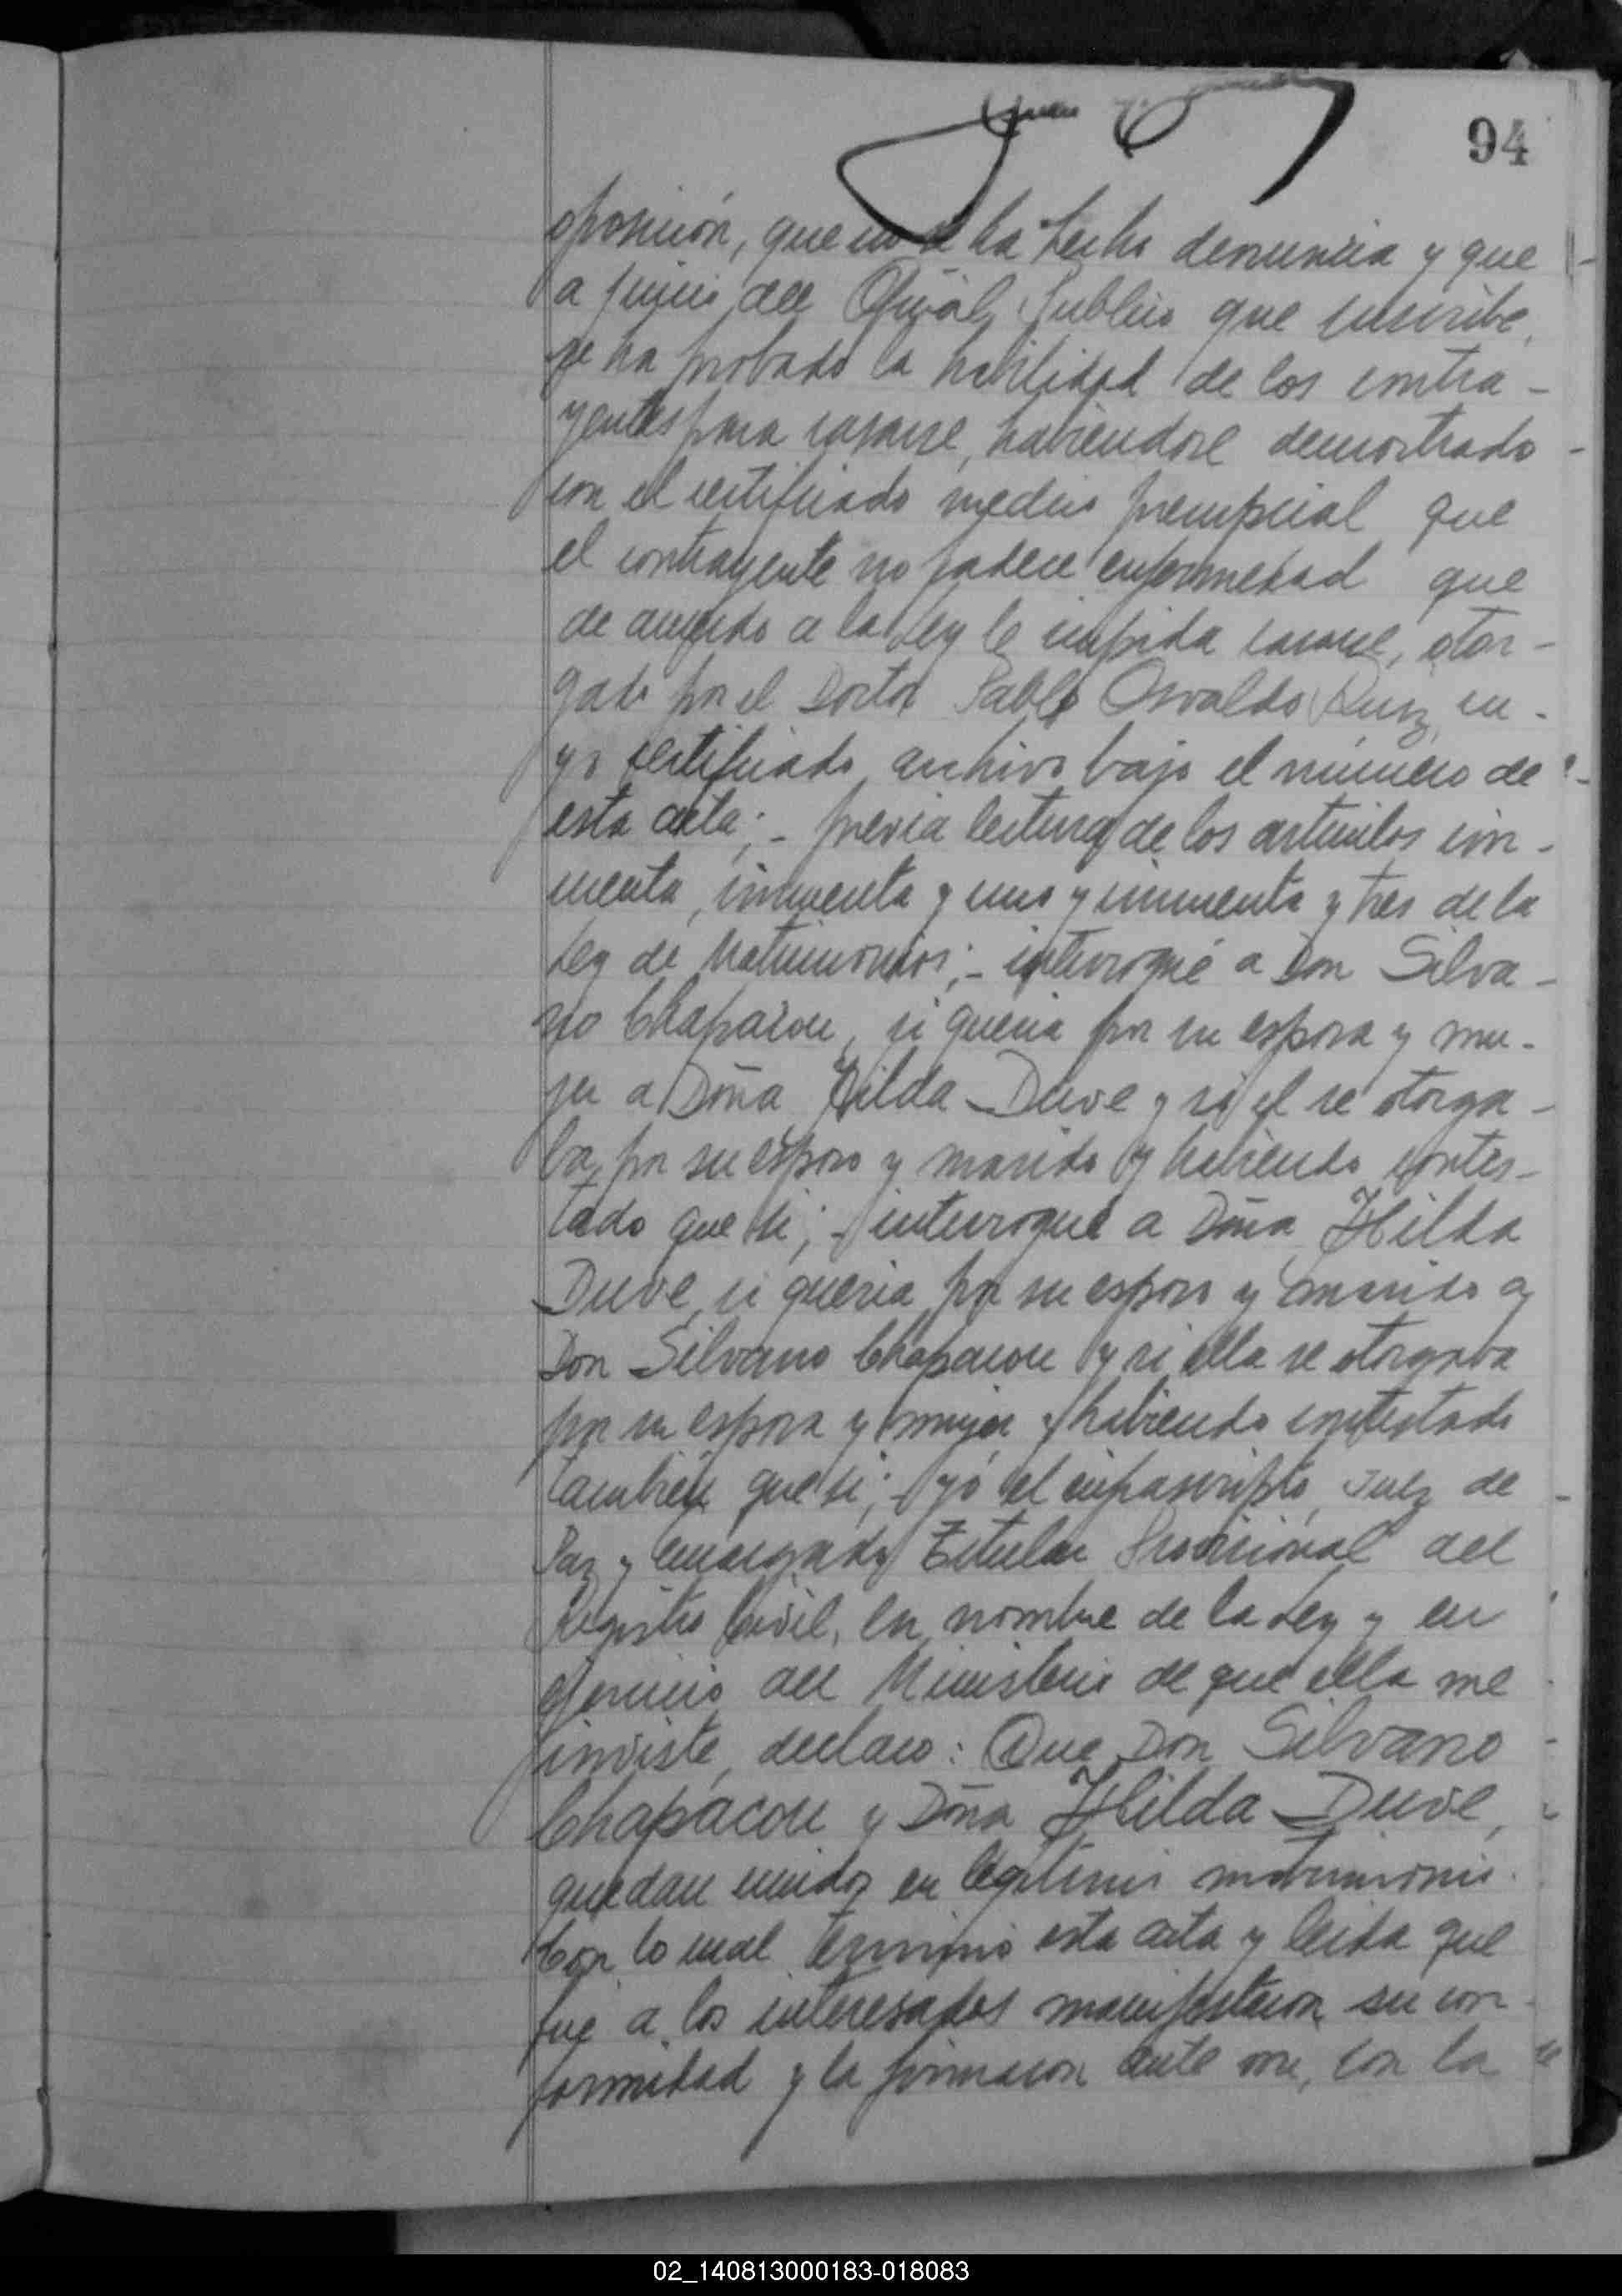 94
oposición, que no se ha hecho denuncia y que
a juicio del Oficial Publico que suscribe,
se ha probado la habilidad de los contra-
yentes para casarse, habiendose demostrado
con el certificado medico prenupcial que
el contrayente no padece enfermedad que
de acuerdo a la Ley le impida casarse, otor-
gado por el Doctor Pablo Osvaldo Ruiz, cu-
yo certificado archivo bajo el número de
esta acta;- previa lectura de los articulos cin-
cuenta, cincuenta y uno y cincuenta y tres de la
Ley de Matrimonios;- interrogué a Don Silva-
no Chaparou, si queria por su esposa y mu-
jer a Doña Hilda Duve y si el se otorga-
ba por su esposo y marido y habiendo contes-
tado que si;- interrogué a Doña Hilda
Duve, si queria por su esposo y marido a
Don Silvano Chaparou y si ella se otorgaba
por su esposa y mujer y habiendo contestado
también que si;- yó el infrascripto, Juez de
Paz y Encargado Titular Provisional del
Registro Civil, en nombre de la Ley y en
ejercicio del Ministerio de que ella me
inviste, declaro: Que Don Silvano
Chapacou y Doña Hilda Duve,
quedan unidos en legitimo matrimonio.
Con lo cual terminó esta acta y leida que
fue a los interesados manifestaron su con-
formidad y la firmaron ante mi, con la
02_140813000183-018083